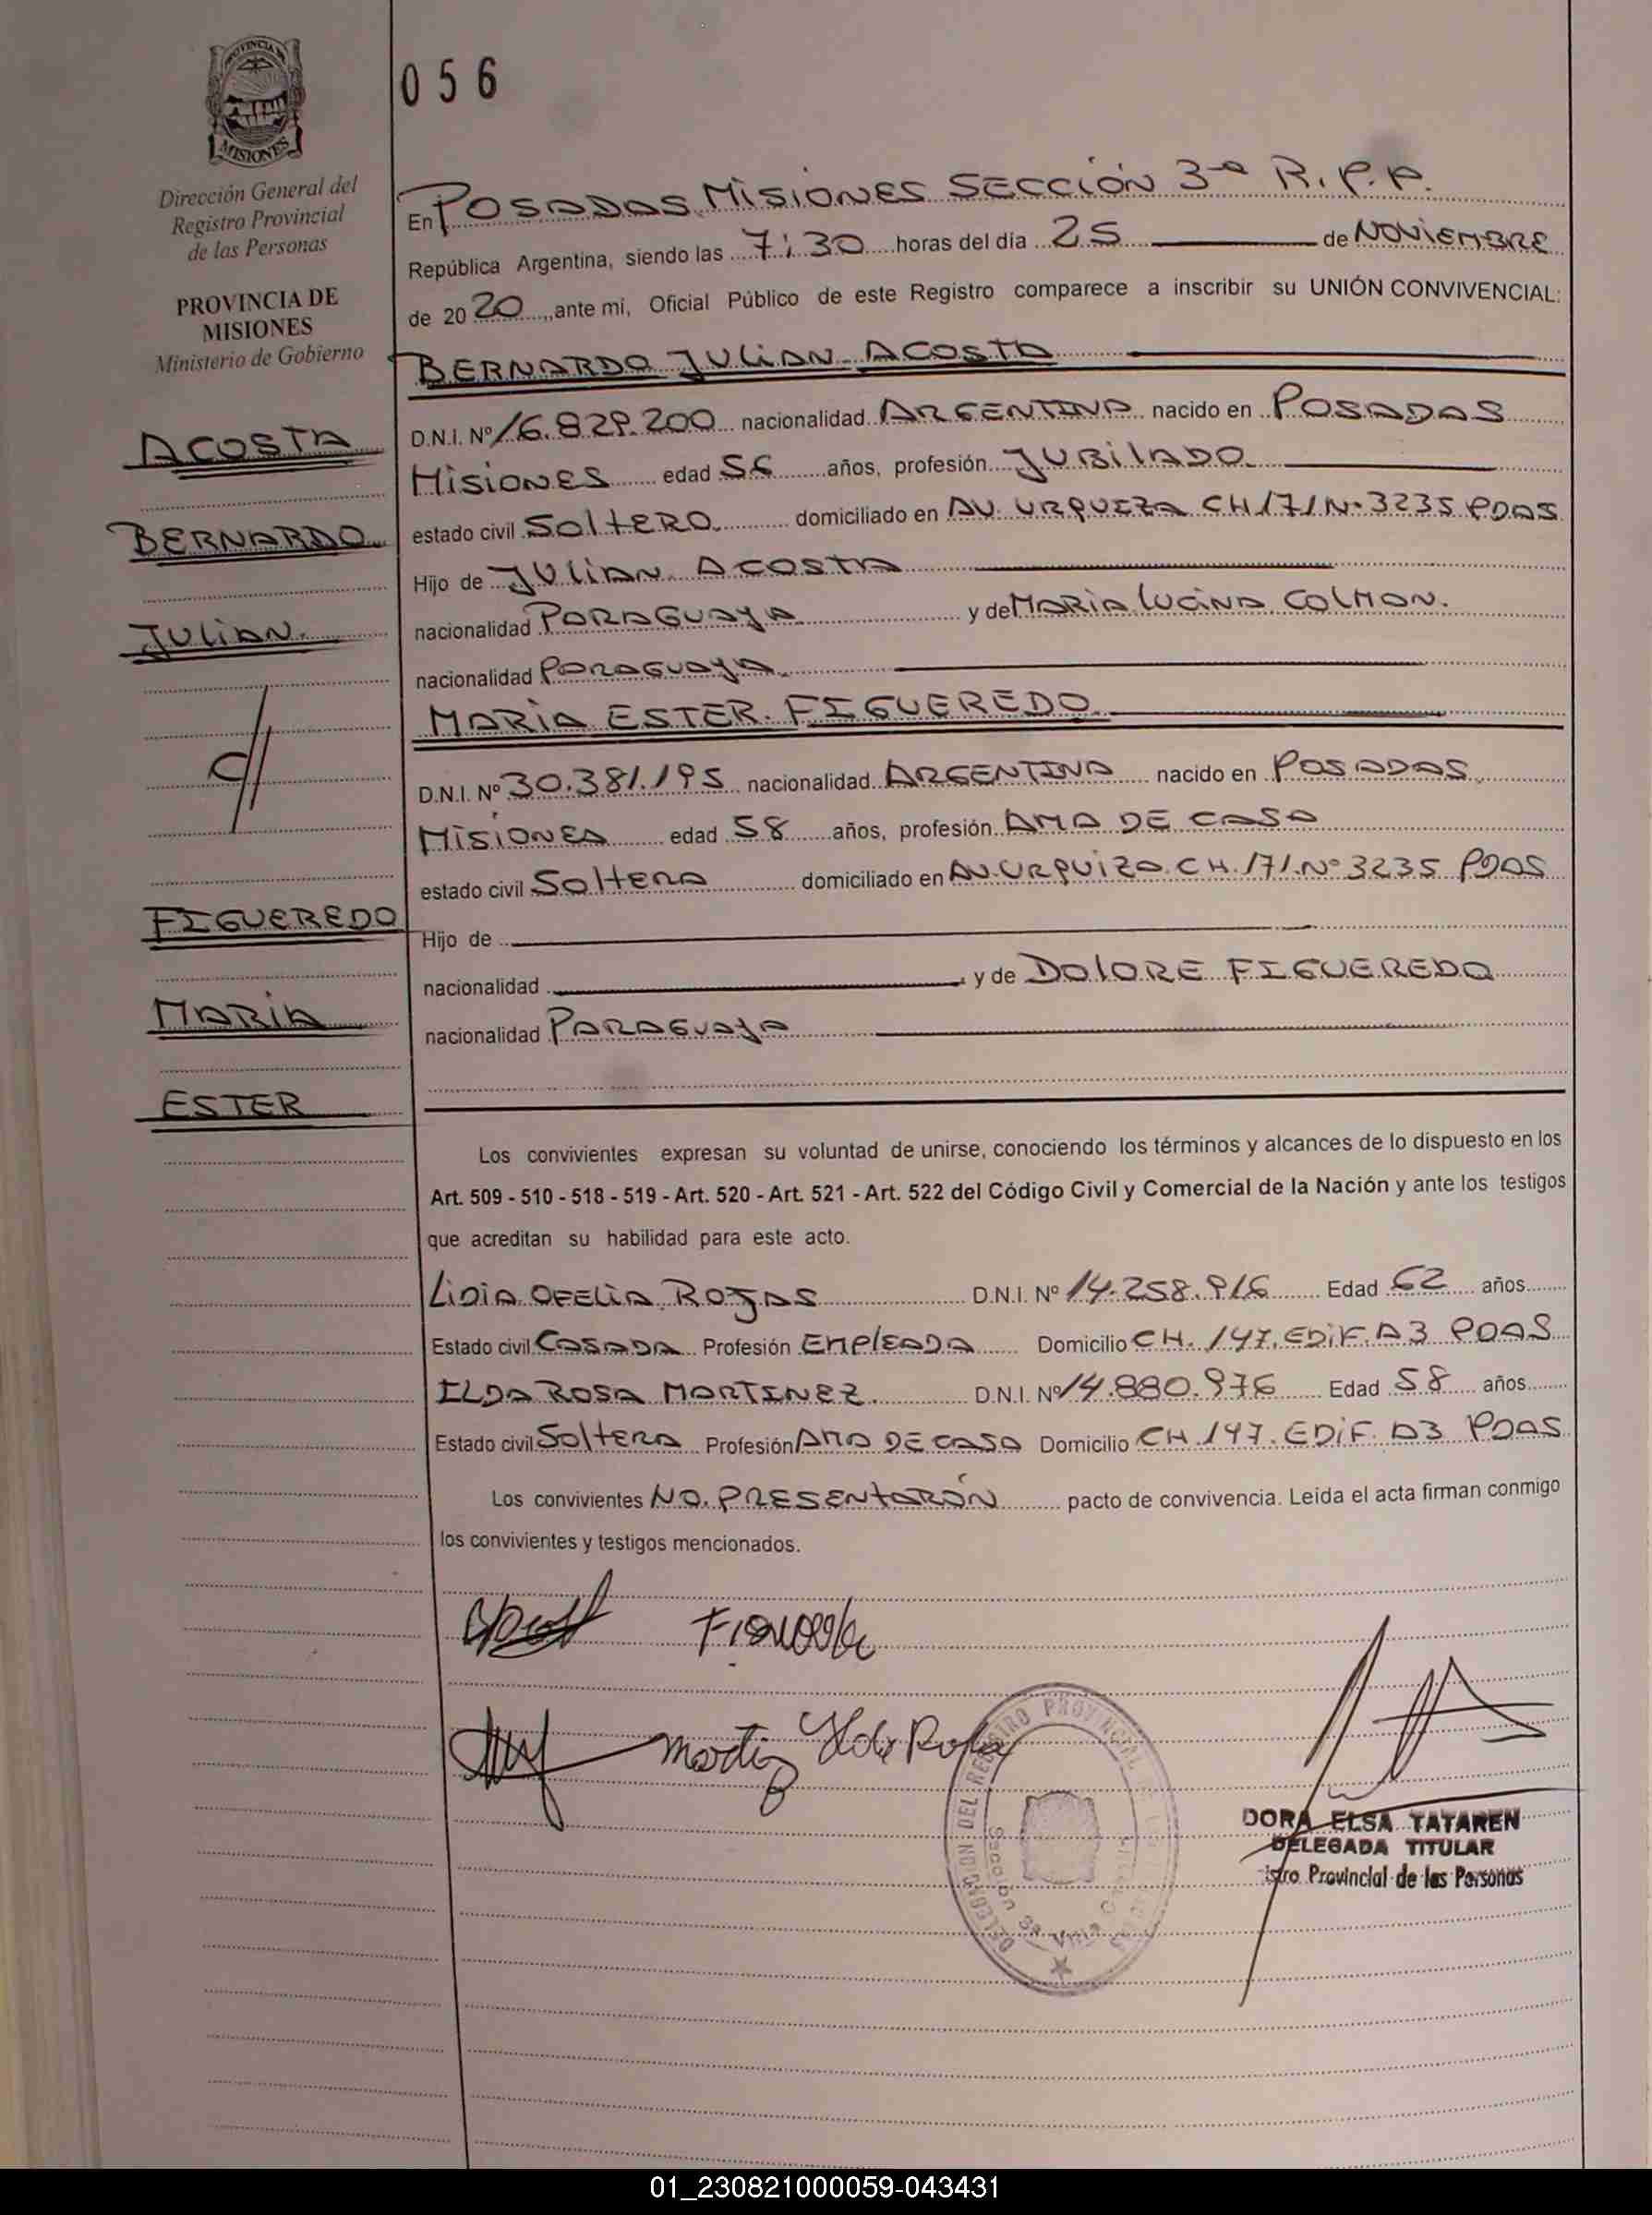 PROVINCIA DE
MISIONES
Dirección General del
Registro Provincial
de las Personas
PROVINCIA DE
MISIONES
Ministerio de Gobierno
ACOSTA
BERNARDO
JULIAN
FIGUEREDO
MARIA
ESTER
056
En POSADAS MISIONES SECCIÓN 3ª R.P.P.
República Argentina, siendo las 7:30 horas del día 25 de NOVIEMBRE
de 2020, ante mi, Oficial Público de este Registro comparece a inscribir su UNIÓN CONVIVENCIAL:
BERNARDO JULIAN ACOSTA
D.N.I. Nº 16.829.200 nacionalidad ARGENTINA nacido en POSADAS
MISIONES edad 56 años, profesión JUBILADO
estado civil SOLTERO domiciliado en AV. URQUEZA CH 171 Nº 3235 PDAS
Hijo de JULIAN ACOSTA
nacionalidad PARAGUAYA y de MARIA LUCINA COLMAN.
nacionalidad PARAGUAYA
MARIA ESTER FIGUEREDO
D.N.I. Nº 30.381.195 nacionalidad ARGENTINA nacido en POSADAS
MISIONES edad 58 años, profesión AMA DE CASA
estado civil SOLTERA domiciliado en AV. URQUIZA CH. 171. Nº 3235 PDAS
Hijo de
nacionalidad y de DOLORE FIGUEREDO
nacionalidad PARAGUAYA
Los convivientes expresan su voluntad de unirse, conociendo los términos y alcances de lo dispuesto en los
Art. 509 - 510 - 518 - 519 - Art. 520 - Art. 521 - Art. 522 del Código Civil y Comercial de la Nación y ante los testigos
que acreditan su habilidad para este acto.
LIDIA OFELIA ROJAS D.N.I. Nº 14.258.916 Edad 62 años
Estado civil CASADA Profesión EMPLEADA Domicilio CH. 147. EDIF. A3 PDAS
ILDA ROSA MARTINEZ D.N.I. Nº 14.880.976 Edad 58 años
Estado civil SOLTERA Profesión AMA DE CASA Domicilio CH 147. EDIF. A3 PDAS
Los convivientes NO. PRESENTARÓN pacto de convivencia. Leida el acta firman conmigo
los convivientes y testigos mencionados.
DELEGACION DEL REGISTRO PROVINCIAL DE LAS
Sección 3ª Villa
DORA ELSA TATAREN
DELEGADA TITULAR
istro Provincial de las Personas
01_230821000059-043431